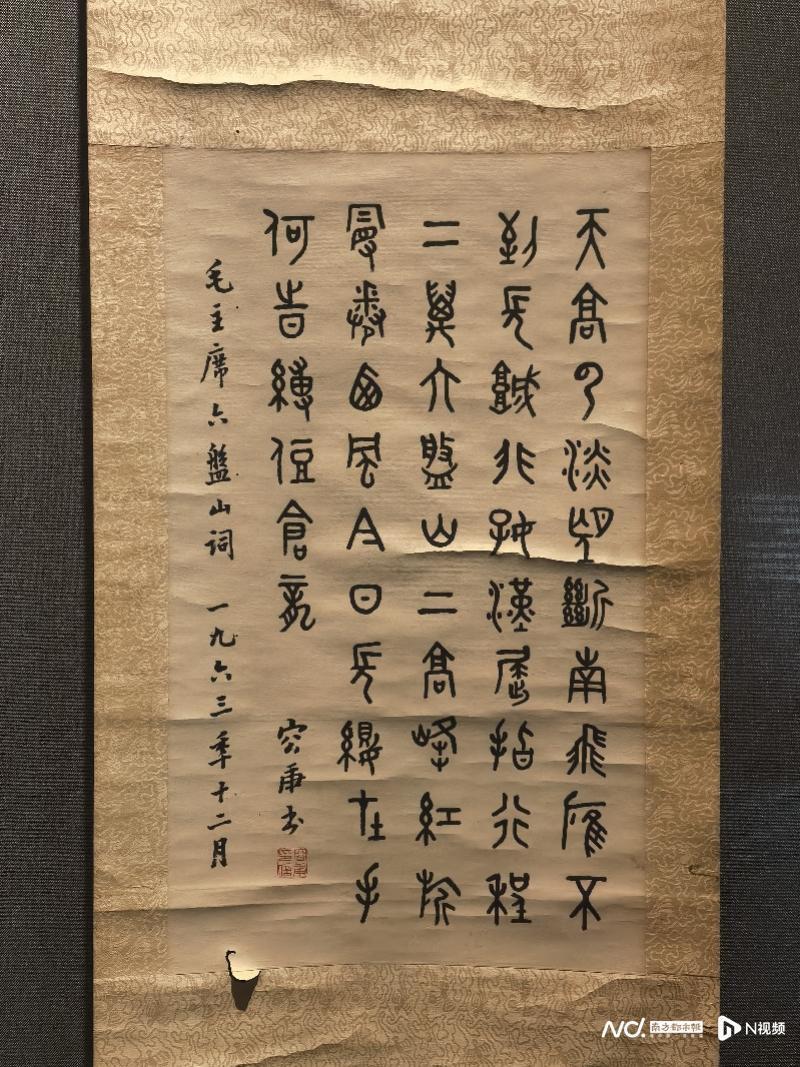 天高云淡望斷南飛雁不
到長城非好漢屈指行程
二萬六盤山上高峰紅旂
曼捲西風今日長纓在手
何時縛住倉龍
容庚書
毛主席六盤山詞 一九六三年十二月
ND. 南方都市報
N视频